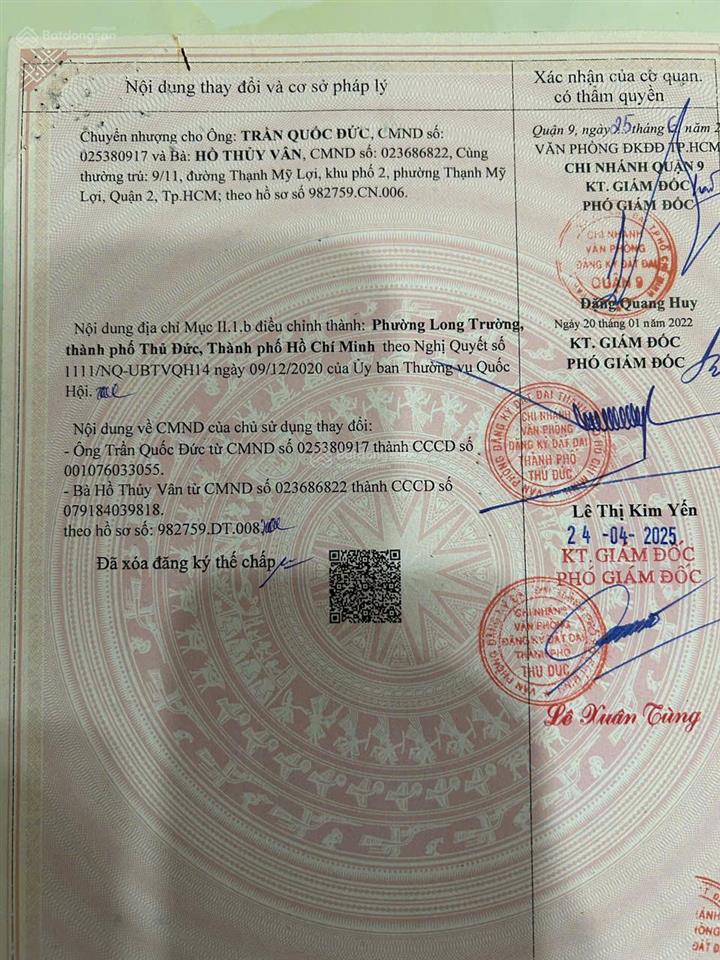 Batdongsan
Nội dung thay đổi và cơ sở pháp lý
Xác nhận của cơ quan
có thẩm quyền
Chuyển nhượng cho Ông: TRẦN QUỐC ĐỨC, CMND số:
025380917 và Bà: HỒ THỦY VÂN, CMND số: 023686822, Cùng
thường trú: 9/11, đường Thạnh Mỹ Lợi, khu phố 2, phường Thạnh Mỹ
Lợi, Quận 2, Tp.HCM; theo hồ sơ số 982759.CN.006.
Quận 9, ngày 25 tháng 6 năm 2
VĂN PHÒNG ĐKĐĐ TP.HCM
CHI NHÁNH QUẬN 9
KT. GIÁM ĐỐC
PHÓ GIÁM ĐỐC
CHI NHÁNH
VĂN PHÒNG
ĐĂNG KÝ ĐẤT ĐAI
QUẬN 9
Đặng Quang Huy
Nội dung địa chỉ Mục II.1.b điều chỉnh thành: Phường Long Trường,
thành phố Thủ Đức, Thành phố Hồ Chí Minh theo Nghị Quyết số
1111/NQ-UBTVQH14 ngày 09/12/2020 của Ủy ban Thường vụ Quốc
Hội.
Ngày 20 tháng 01 năm 2022
KT. GIÁM ĐỐC
PHÓ GIÁM ĐỐC
CHI NHÁNH
VĂN PHÒNG
ĐĂNG KÝ ĐẤT ĐAI
THÀNH PHỐ
THỦ ĐỨC
Lê Thị Kim Yến
Nội dung về CMND của chủ sử dụng thay đổi:
- Ông Trần Quốc Đức từ CMND số 025380917 thành CCCD số
001076033055.
- Bà Hồ Thủy Vân từ CMND số 023686822 thành CCCD số
079184039818.
theo hồ sơ số: 982759.DT.008
Đã xóa đăng ký thế chấp
24 -04- 2025
KT. GIÁM ĐỐC
PHÓ GIÁM ĐỐC
CHI NHÁNH
VĂN PHÒNG
ĐĂNG KÝ ĐẤT ĐAI
THÀNH PHỐ
THỦ ĐỨC
Lê Xuân Tùng